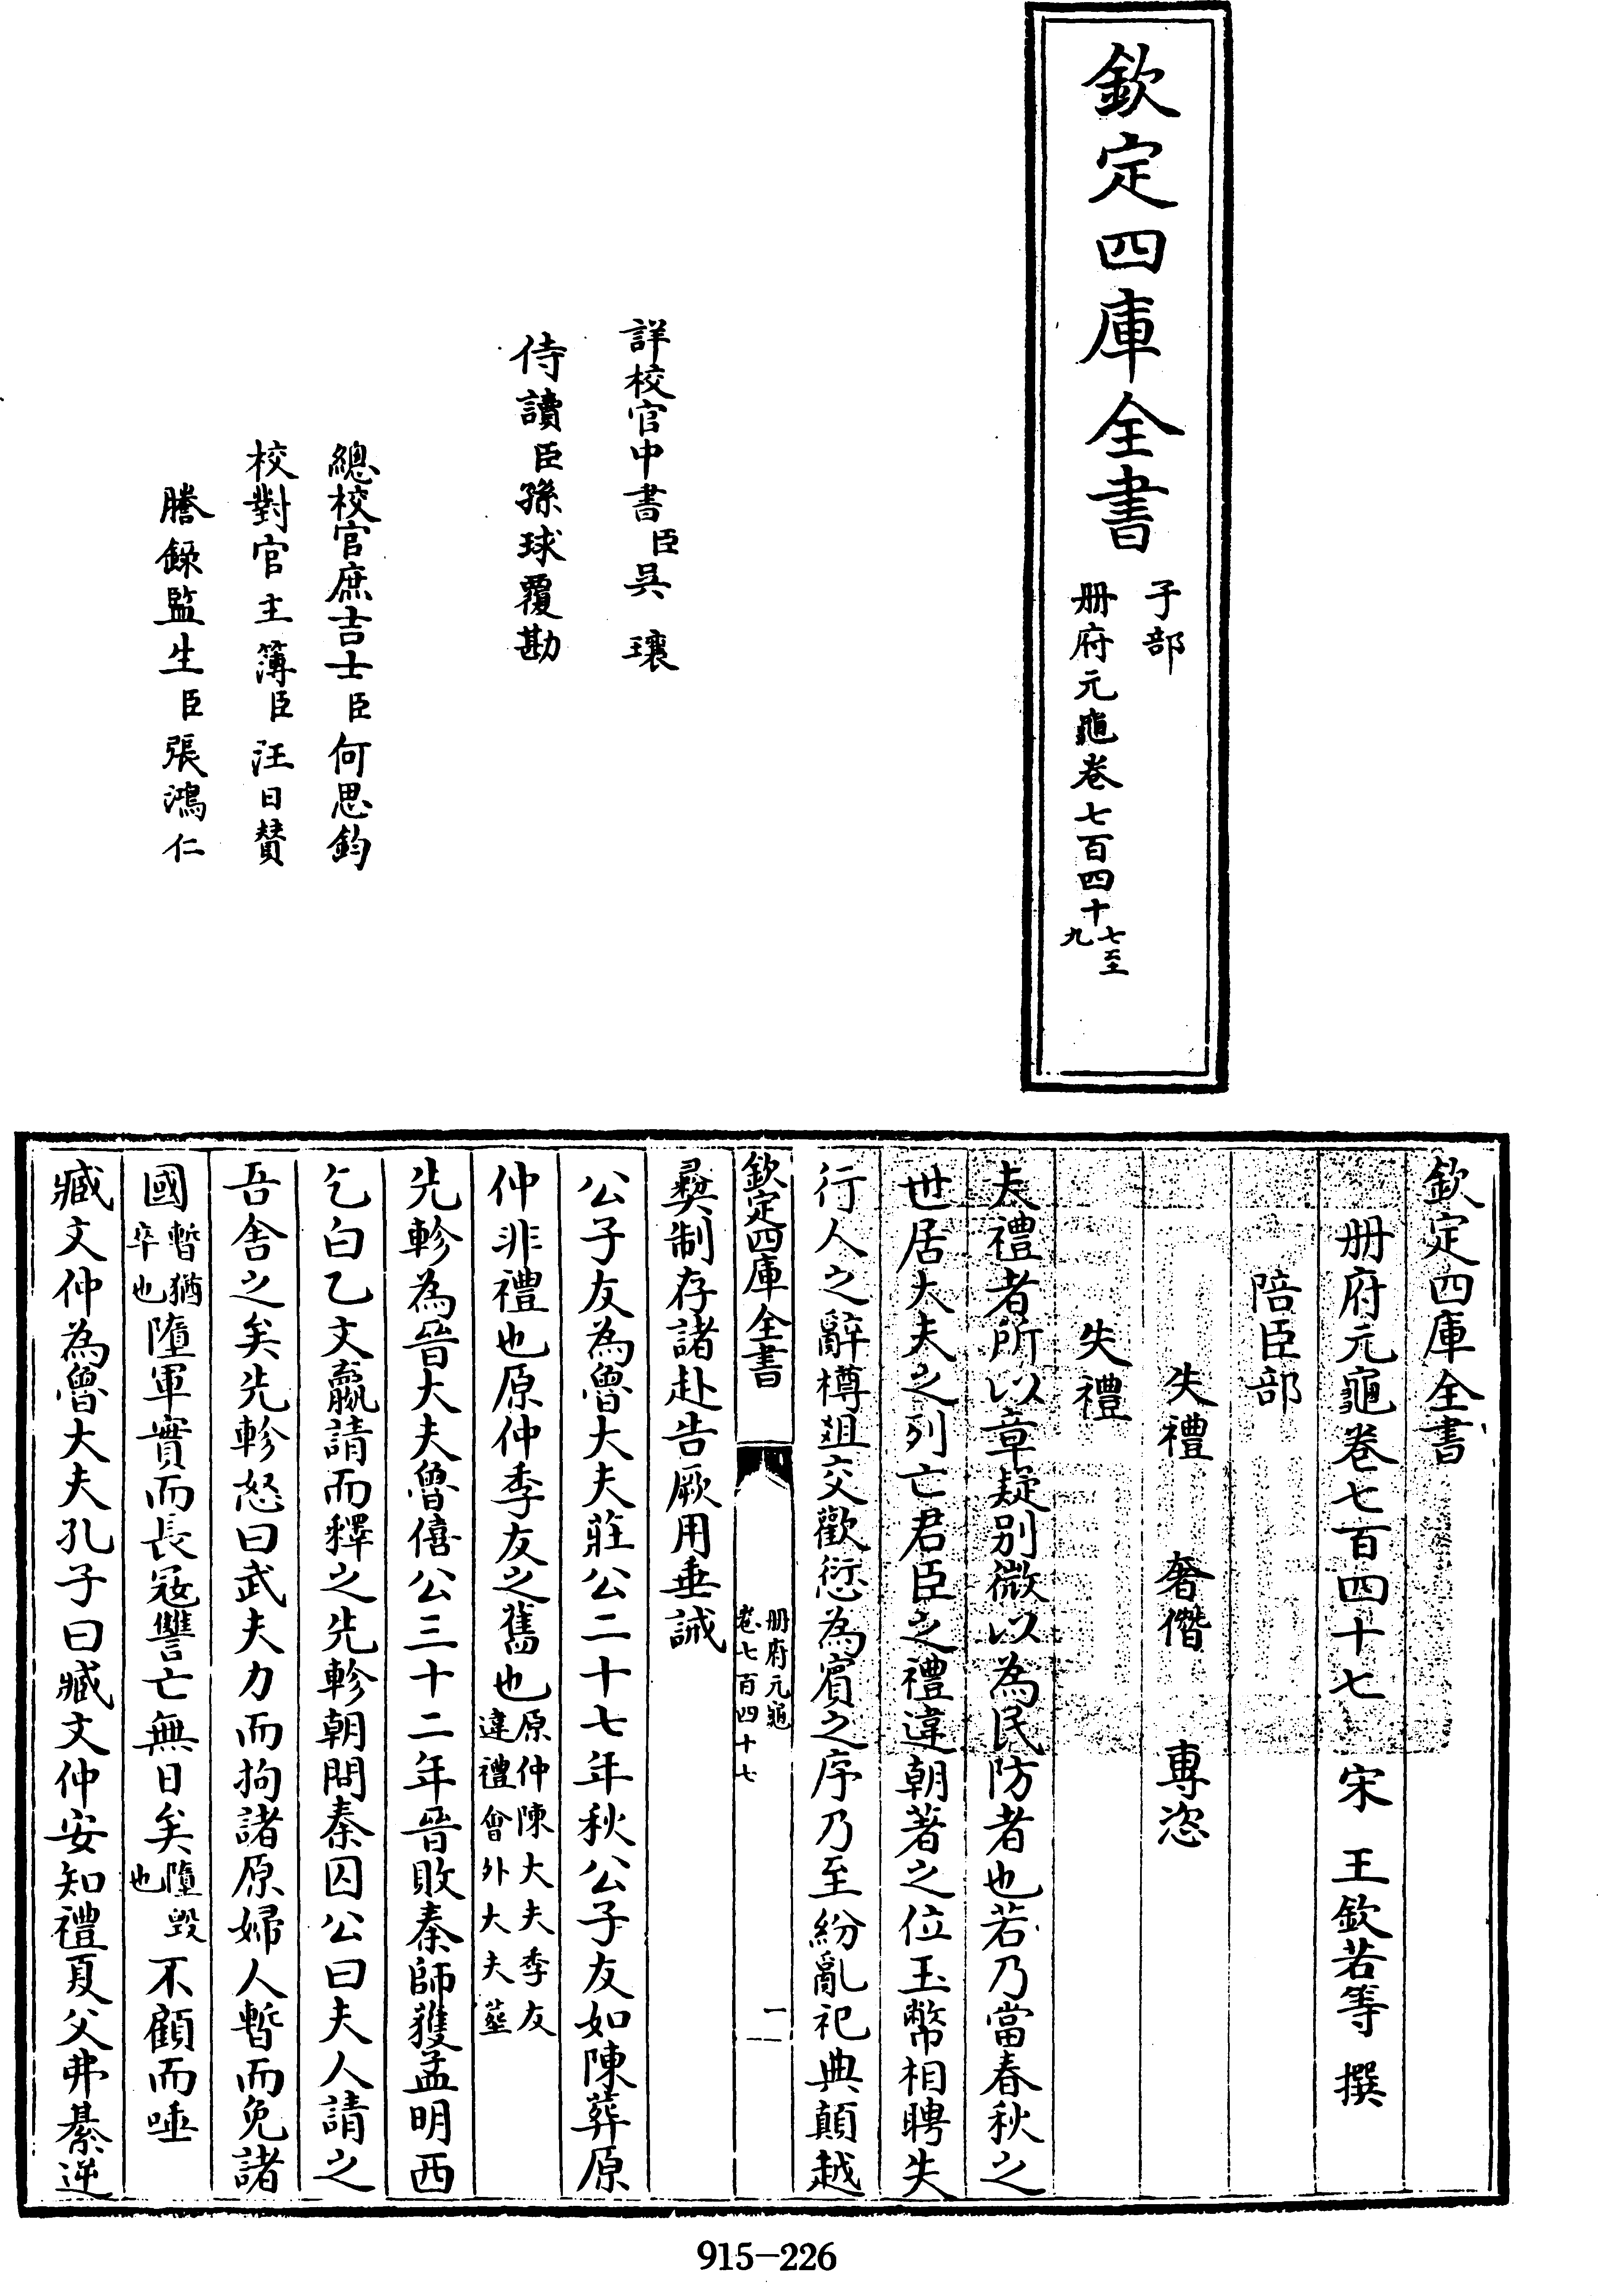 欽定四庫全書
子部
册府元龜卷七百四十七至九
詳校官中書臣吳瓖
侍讀臣孫球覆勘
總校官庶吉士臣何思鈞
校對官主簿臣汪日贊
謄錄監生臣張鴻仁
欽定四庫全書
册府元龜卷七百四十七 宋 王欽若等 撰
陪臣部
失禮 奢僭 專恣
失禮
夫禮者所以章疑别微以為民防者也若乃當春秋之
世居大夫之列亡君臣之禮違朝著之位玉幣相聘失
行人之辭樽爼交歡愆為賓之序乃至紛亂祀典顛越
欽定四庫全書 册府元龜 卷七百四十七 一
彞制存諸赴告厥用垂誡
公子友為魯大夫莊公二十七年秋公子友如陳葬原
仲非禮也原仲季友之舊也原仲陳大夫季友違禮會外大夫葬
先軫為晉大夫魯僖公三十二年晉敗秦師獲孟明西
乞白乙文嬴請而釋之先軫朝問秦囚公曰夫人請之
吾舍之矣先軫怒曰武夫力而拘諸原婦人暫而免諸
國暫猶卒也墮軍實而長冦讐亡無日矣墮毀也不顧而唾
臧文仲為魯大夫孔子曰臧文仲安知禮夏父弗綦逆
915-226